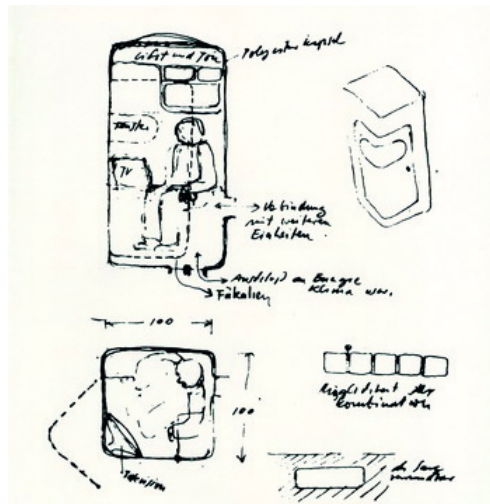 Licht und Ton
Polyesterkapsel
Fenster
TV
Verbindung
mit weiteren
Einheiten.
Anschluß an Energie
Klima usw.
Fäkalien
100
100
Möglichkeit der
Kombination
Television
als Sarg
verwendbar